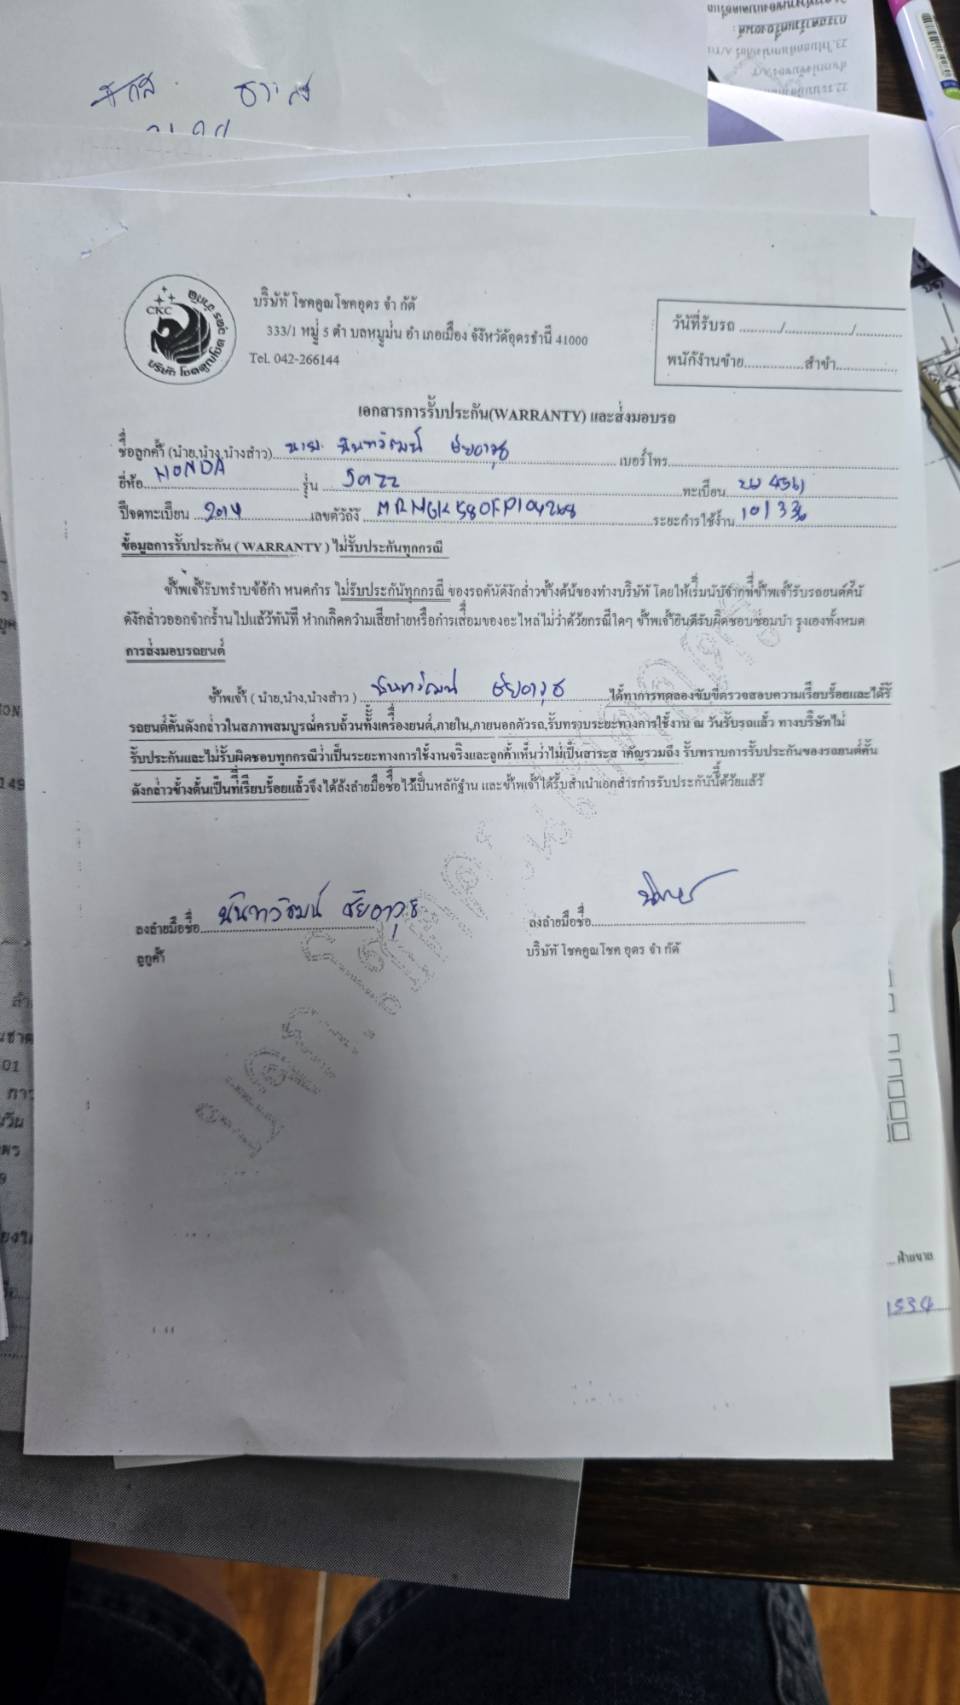 บริษัท โชคคูณโชคอุดร จำกัด
333/1 หมู่ 5 ตำบลหมูม่น อำเภอเมือง จังหวัดอุดรธานี 41000
Tel. 042-266144
CKC
วันที่รับรถ ........../................../............
พนักงานขาย...............สาขา................
เอกสารการรับประกัน(WARRANTY) และส่งมอบรถ
ชื่อลูกค้า (นาย,นาง,นางสาว) นาย นันทวัฒน์ ชัยอาวุธ เบอร์โทร
ยี่ห้อ HONDA รุ่น JAZZ ทะเบียน 4561
ปีจดทะเบียน 2014 เลขตัวถัง ระยะการใช้งาน
ข้อมูลการรับประกัน ( WARRANTY ) ไม่รับประกันทุกกรณี
ข้าพเจ้ารับทราบข้อกำหนดการ ไม่รับประกันทุกกรณี ของรถคันดังกล่าวข้างต้นของทางบริษัท โดยให้เริ่มนับจากที่ข้าพเจ้ารับรถยนต์คัน
ดังกล่าวออกจากร้านไปแล้วทันที หากเกิดความเสียหายหรือการเสื่อมของอะไหล่ไม่ว่าด้วยกรณีใดๆ ข้าพเจ้ายินดีรับผิดชอบซ่อมบำรุงเองทั้งหมด
การส่งมอบรถยนต์
ข้าพเจ้า ( นาย,นาง,นางสาว ) นันทวัฒน์ ชัยอาวุธ ได้ทำการทดลองขับขี่ตรวจสอบความเรียบร้อยและได้รับ
รถยนต์คันดังกล่าวในสภาพสมบูรณ์ครบถ้วนทั้งเครื่องยนต์,ภายใน,ภายนอกตัวรถ,รับทราบระยะทางการใช้งาน ณ วันรับรถแล้ว ทางบริษัทไม่
รับประกันและไม่รับผิดชอบทุกกรณีว่าเป็นระยะทางการใช้งานจริงและลูกค้าเห็นว่าไม่เป็นสาระสำคัญรวมถึง รับทราบการรับประกันของรถยนต์คัน
ดังกล่าวข้างต้นเป็นที่เรียบร้อยแล้วจึงได้ลงลายมือชื่อไว้เป็นหลักฐาน และข้าพเจ้าได้รับสำเนาเอกสารการรับประกันนี้ด้วยแล้ว
ลงลายมือชื่อ นันทวัฒน์ ชัยอาวุธ
ลูกค้า
ลงลายมือชื่อ
บริษัท โชคคูณโชค อุดร จำกัด
ฝ่ายขาย
1534